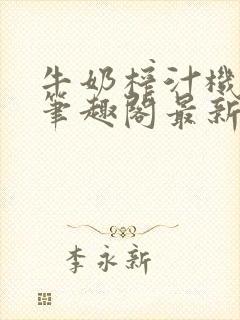 牛奶榨汁機
筆趣閣最新
李永新